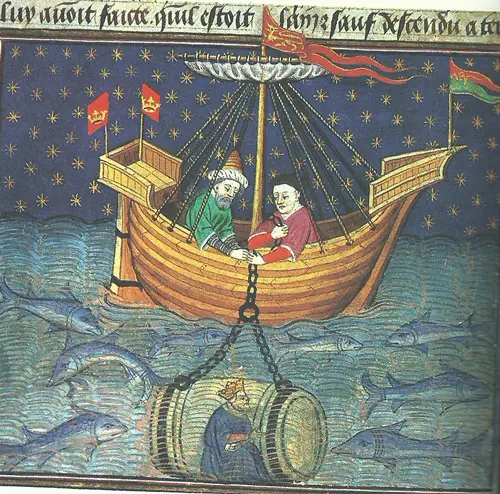 luy auoit faicte quil estoit lans sauf descendu a ter